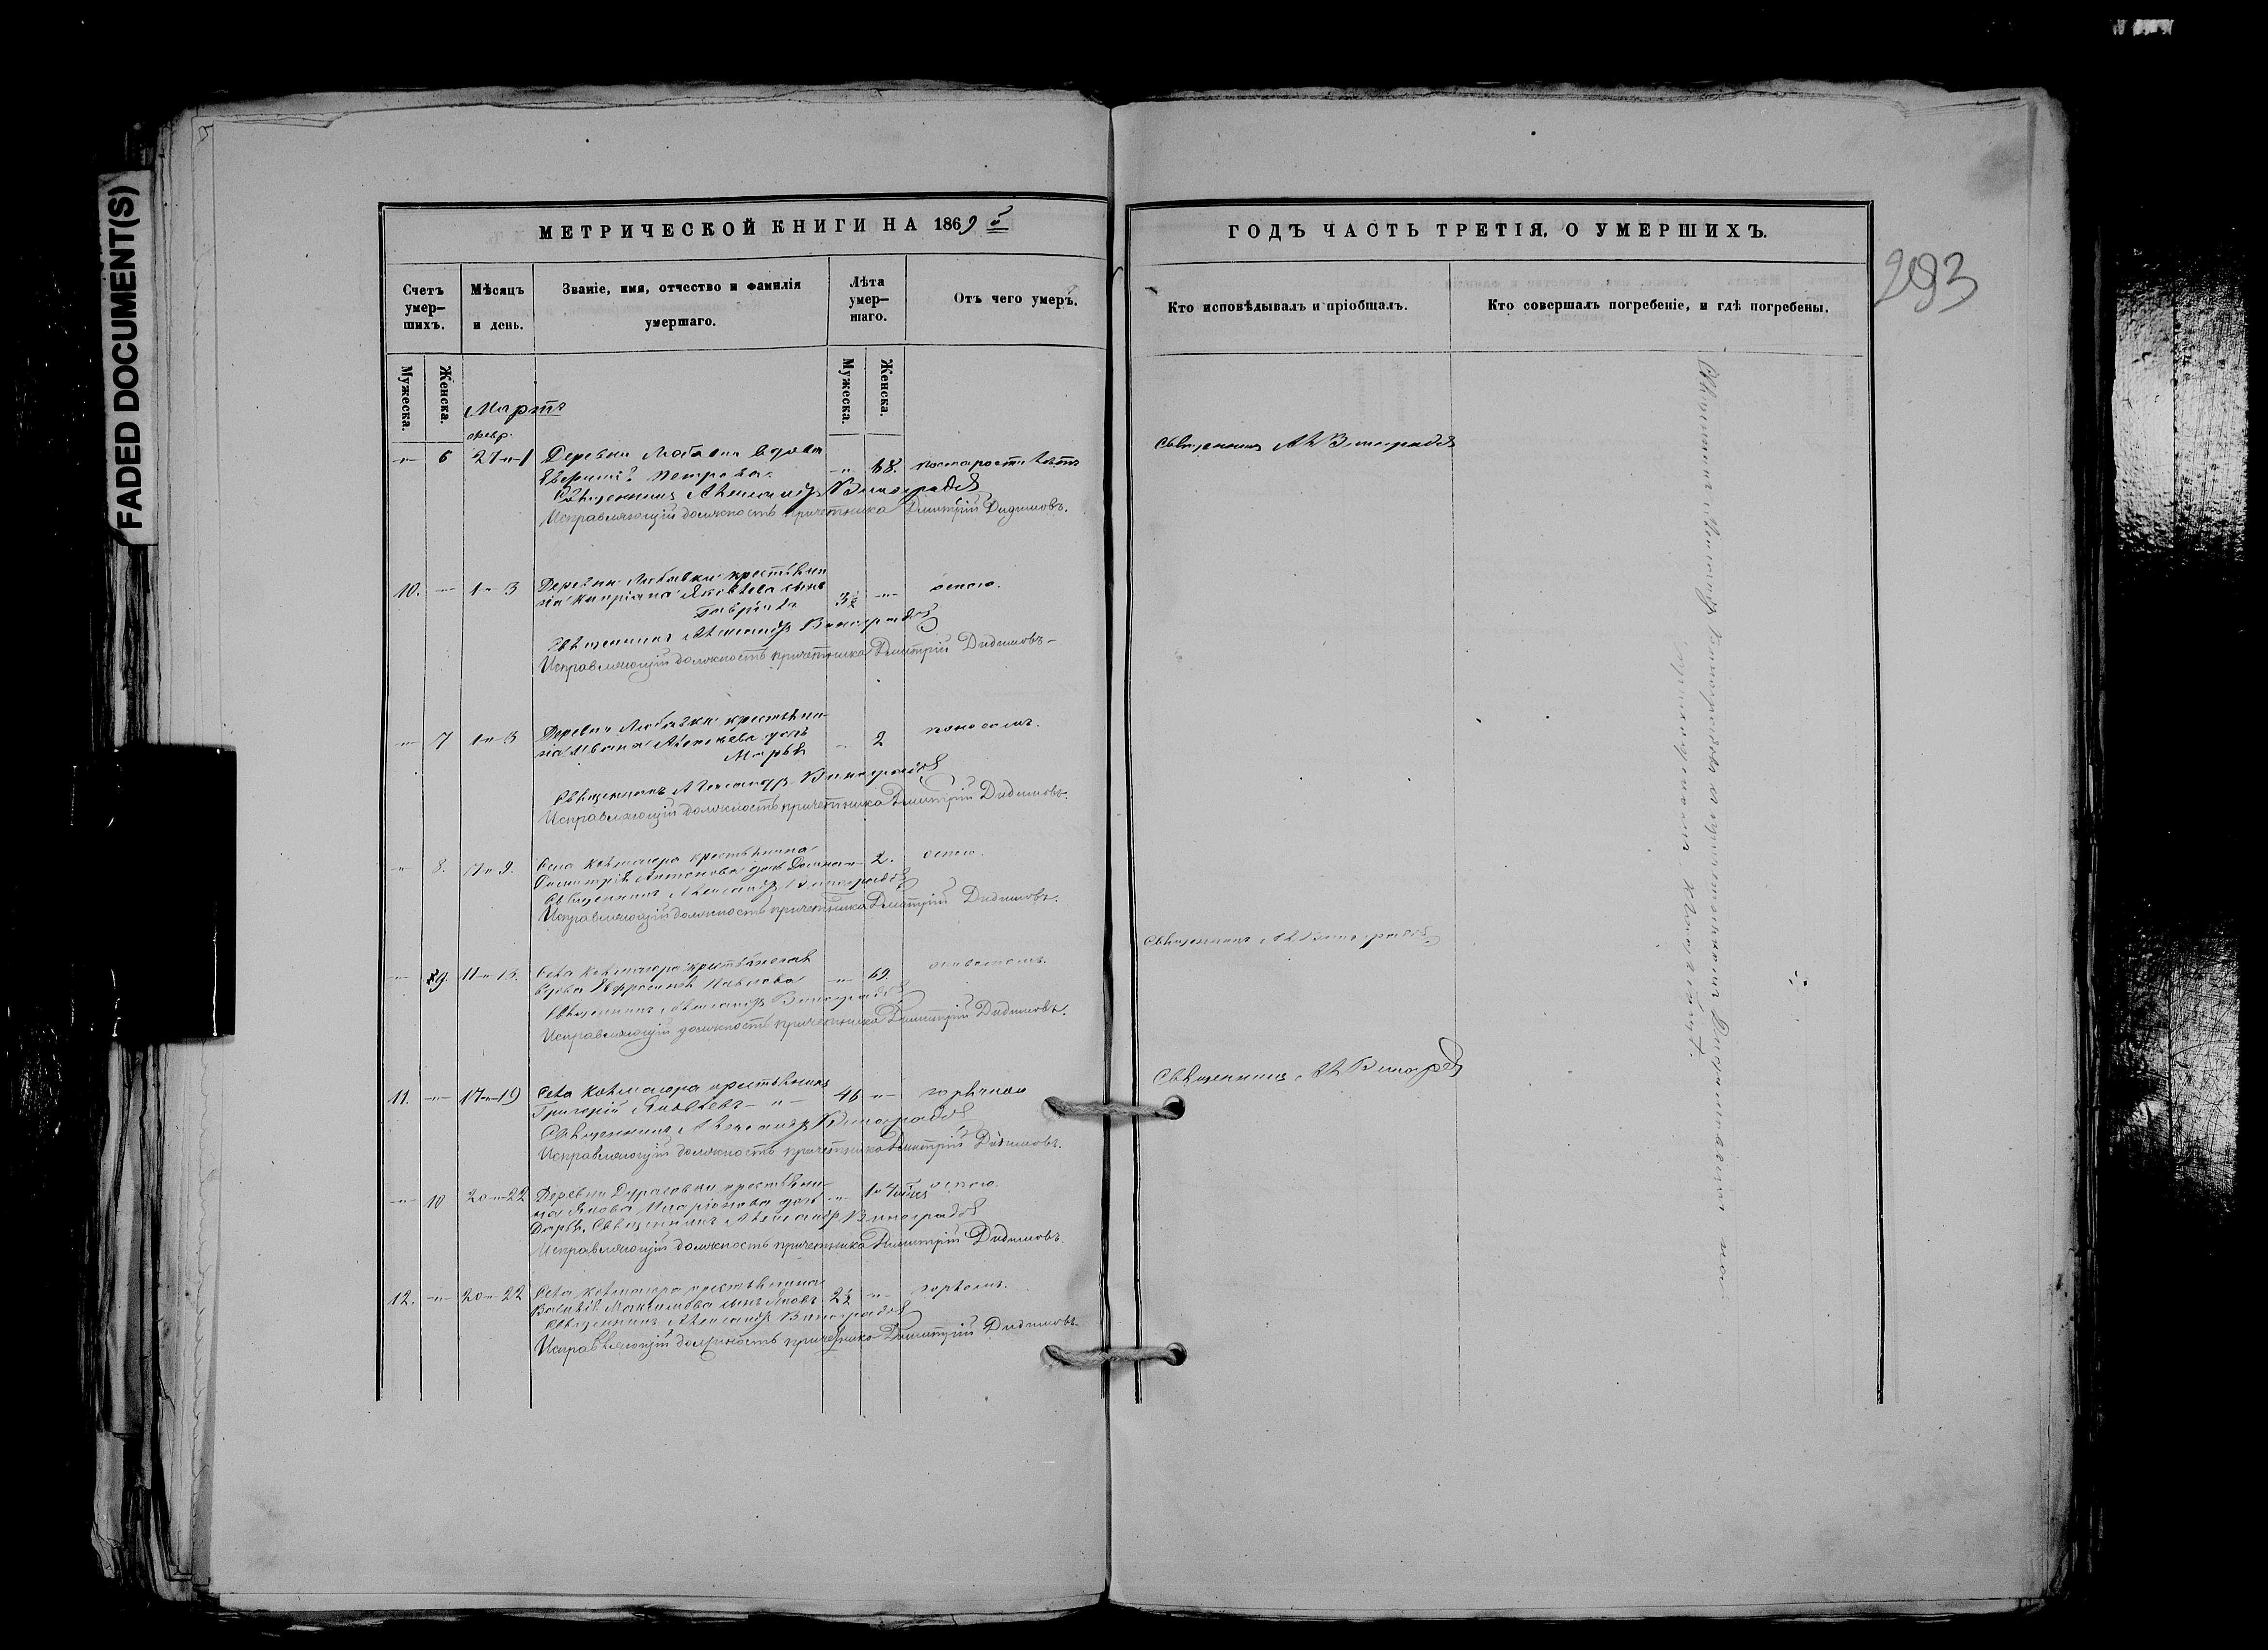 FADED DOCUMENT(S)
МЕТРИЧЕСКОЙ КНИГИ НА 1869 й
Счетъ умер-шихъ.
Мѣсяцъ и день.
Званіе, имя, отчество и фамилія умершаго.
Лѣта умер-шаго.
Отъ чего умеръ.
Мужеска.
Женска.
Мужеска.
Женска.
Мартъ
Февр.
6 27 1 Деревни вдова 68.
Петрова
Священникъ Александръ Виноградовъ
Исправляющій должность причетника Дмитрій Дидимовъ.
10. 1 3 Деревни Любавки крестьяни-
на Кипріана Яковлева сынъ 3½ оспою.
Гавріилъ
Священникъ Александръ Виноградовъ
Исправляющій должность причетника Дмитрій Дидимовъ
7 1 3 Деревни Любавки крестьяни- поносомъ.
на Ивана Алексѣева дочь 2
Марья
Священникъ Александръ Виноградовъ
Исправляющій должность причетника Дмитрій Дидимовъ.
8. 7 9. Села крестьянина оспою.
Димитрія Антонова дочь Домна 2.
Священникъ Александръ Виноградовъ
Исправляющій должность причетника Дмитрій Дидимовъ.
9. 11 13. Села крестьянская
вдова Евфросинья Павлова 69. животомъ.
Священникъ Александръ Виноградовъ
Исправляющій должность причетника Дмитрій Дидимовъ.
11. 17 19 Села крестьянинъ 46 горячкою
Григорій Яковлевъ
Священникъ Александръ Виноградовъ
Исправляющій должность причетника Дмитрій Дидимовъ.
10 20 22 Деревни Дурасовки крестьяни- оспою.
на Якова Иларіонова дочь
Дарья. Священникъ Александръ Виноградовъ
Исправляющій должность причетника Дмитрій Дидимовъ.
12. 20 22 Села крестьянина 2½
Василія Максимова сынъ Яковъ
Священникъ Александръ Виноградовъ
Исправляющій должность причетника Дмитрій Дидимовъ
ГОДЪ ЧАСТЬ ТРЕТІЯ, О УМЕРШИХЪ.
293
Кто исповѣдывалъ и пріобщалъ.
Кто совершалъ погребеніе, и гдѣ погребены.
Священникъ Ал Виноградовъ
Священникъ Ал Виноградовъ
Священникъ Ал Виноградовъ
Священникъ Александръ Виноградовъ съ причетникомъ на
приходскомъ кладбищѣ.